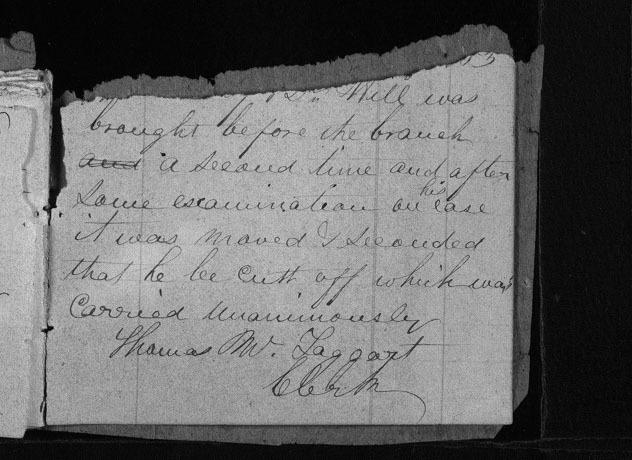 Will was
brought before the branch
and a second time and after
some examination on his case
it was moved & seconded
that he be cutt off which was
carried unanimously
Thomas Mc. Taggart
Clerk